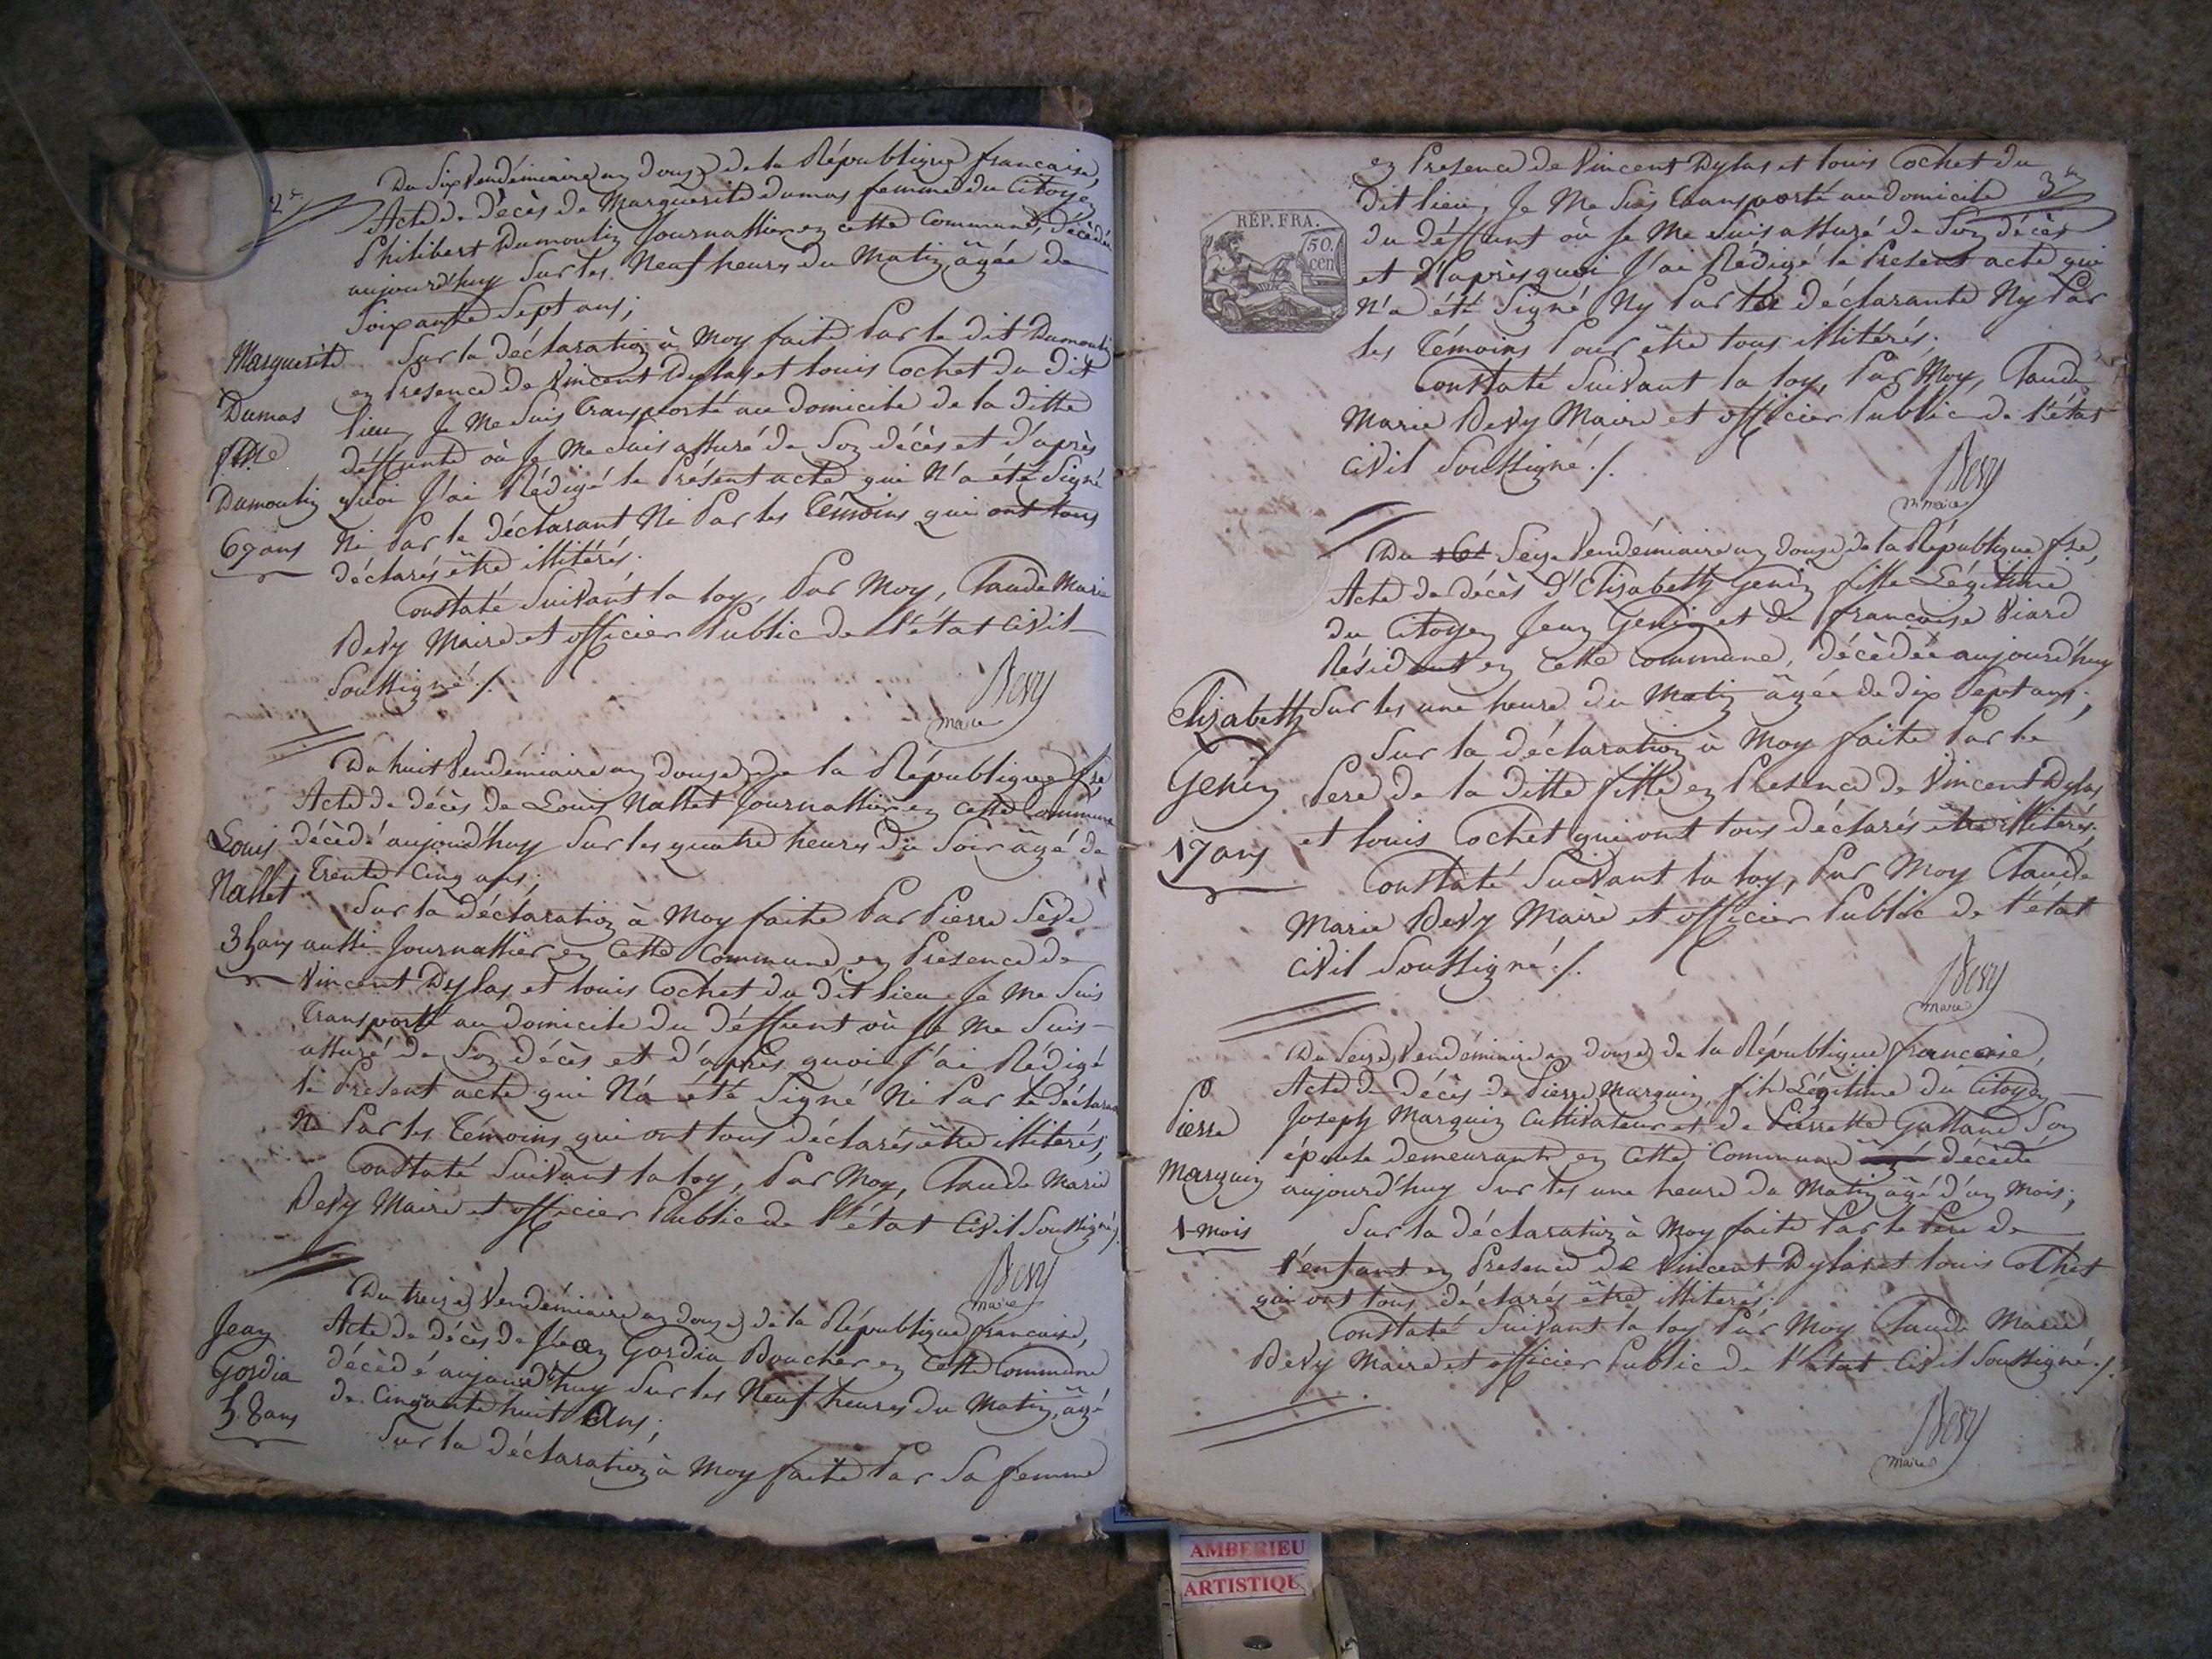 2e
Du Six Vendémiaire an douze de la République francaise,
Acte de décès de Marguerite dumas femme du Citoyen
Philibert Dumoulin Journallier en cette Commune, décèdée
aujourd'huy Sur les Neuf heures du Matin, âgée de
Soixante Sept ans;
Marguerite
Dumas
fme
Dumoulin
67 ans
Sur la déclaration à Moy faite Par le dit Dumoulin
en Presence de Vincent Dylas et Louis Cochet du dit
lieu, Je Me Suis transporté au domicile de la ditte
déffunte où Je Me Suis assuré de Son décès et d'après
quoi J'ai Rédigé le Présent acte qui N'a été Signé
Ni Par le déclarant Ni Par les Témoins qui ont tous
déclarés être illitérés.
Constaté Suivant la loy, Par Moy, Claude Marie
Devy Maire et officier Public de l'état Civil
Soussigné ./.
Devy
maire
Du huit Vendémiaire an douze de la République fse
Acte de décès de Louis Nallet Journallier en cette Commune
décèdé aujourd'huy Sur les quatre heures du Soir âgé de
Trente Cinq ans;
Louis
Nallet
35 ans
Sur la déclaration à Moy faite Par Pierre Sève
aussi Journallier en Cette Commune en Présence de
Vincent Dylas et Louis Cochet du dit lieu Je Me Suis
Transporté au domicile du déffunt où Je Me Suis
assuré de Son décès et d'après quoi J'ai Rédigé
le Present acte qui N'a été Signé Ni Par le déclarant
Ni Par les Témoins qui ont tous déclarés être illitérés;
Constaté Suivant la loy, Par Moy, Claude Marie
Devy Maire et officier Public de l'état Civil Soussigné ./.
Devy
maire
Du treize Vendémiaire an douze de la République francaise,
Acte de décès de Jean Gordia Boucher en Cette Commune
décèdé aujourd'huy Sur les Neuf heures du Matin, âgé
de Cinquante huit Ans;
Jean
Gordia
58 ans
Sur la déclaration à Moy faite Par Sa femme
RÉP. FRA.
50.
cen
3e
en Presence de Vincent Dylas et Louis Cochet du
dit lieu, Je Me Suis Transporté au domicile
du déffunt où Je Me Suis assuré de Son décès
et D'après quoi J'ai Rédigé le Present acte qui
N'a été Signé Ny Par la déclarante Ny Par
les Témoins Pour être tous illitérés;
Constaté Suivant la loy, Par Moy, Claude
Marie Devy Maire et officier Public de l'état
Civil Soussigné ./.
Devy
maire
Du Seize Vendémiaire an douze de la République fse,
Acte de décès d'Elisabeth Genin fille Légitime
du Citoyen Jean Genin et de françoise Viard
Résidant en Cette Commune, décèdée aujourd'huy
Sur les une heure du Matin âgée de dix Sept ans;
Elisabeth
Genin
17 ans
Sur la déclaration à Moy faite Par le
Pere de la ditte fille en Presence de Vincent Dylas
et Louis Cochet qui ont tous déclarés être illitérés;
Constaté Suivant la loy, Par Moy Claude
Marie Devy Maire et officier Public de l'état
Civil Soussigné ./.
Devy
maire
Du Seize Vendémiaire an douze de la République francaise,
Acte de décès de Pierre Marquin, fils Légitime du Citoyen
Joseph Marquin Cultivateur et de Pierrette Galland Son
épouse demeurants en Cette Commune décèdé
aujourd'huy Sur les une heure du Matin âgé d'un Mois;
Pierre
Marquin
1 mois
Sur la déclaration à Moy faite Par le Pere de
l'enfant en Presence de Vincent Dylas et Louis Cochet
qui ont tous déclarés être illiterés;
Constaté Suivant la loy Par Moy Claude Marie
Devy Maire et officier Public de l'état Civil Soussigné ./.
Devy
maire
AMBERIEU
ARTISTIQU